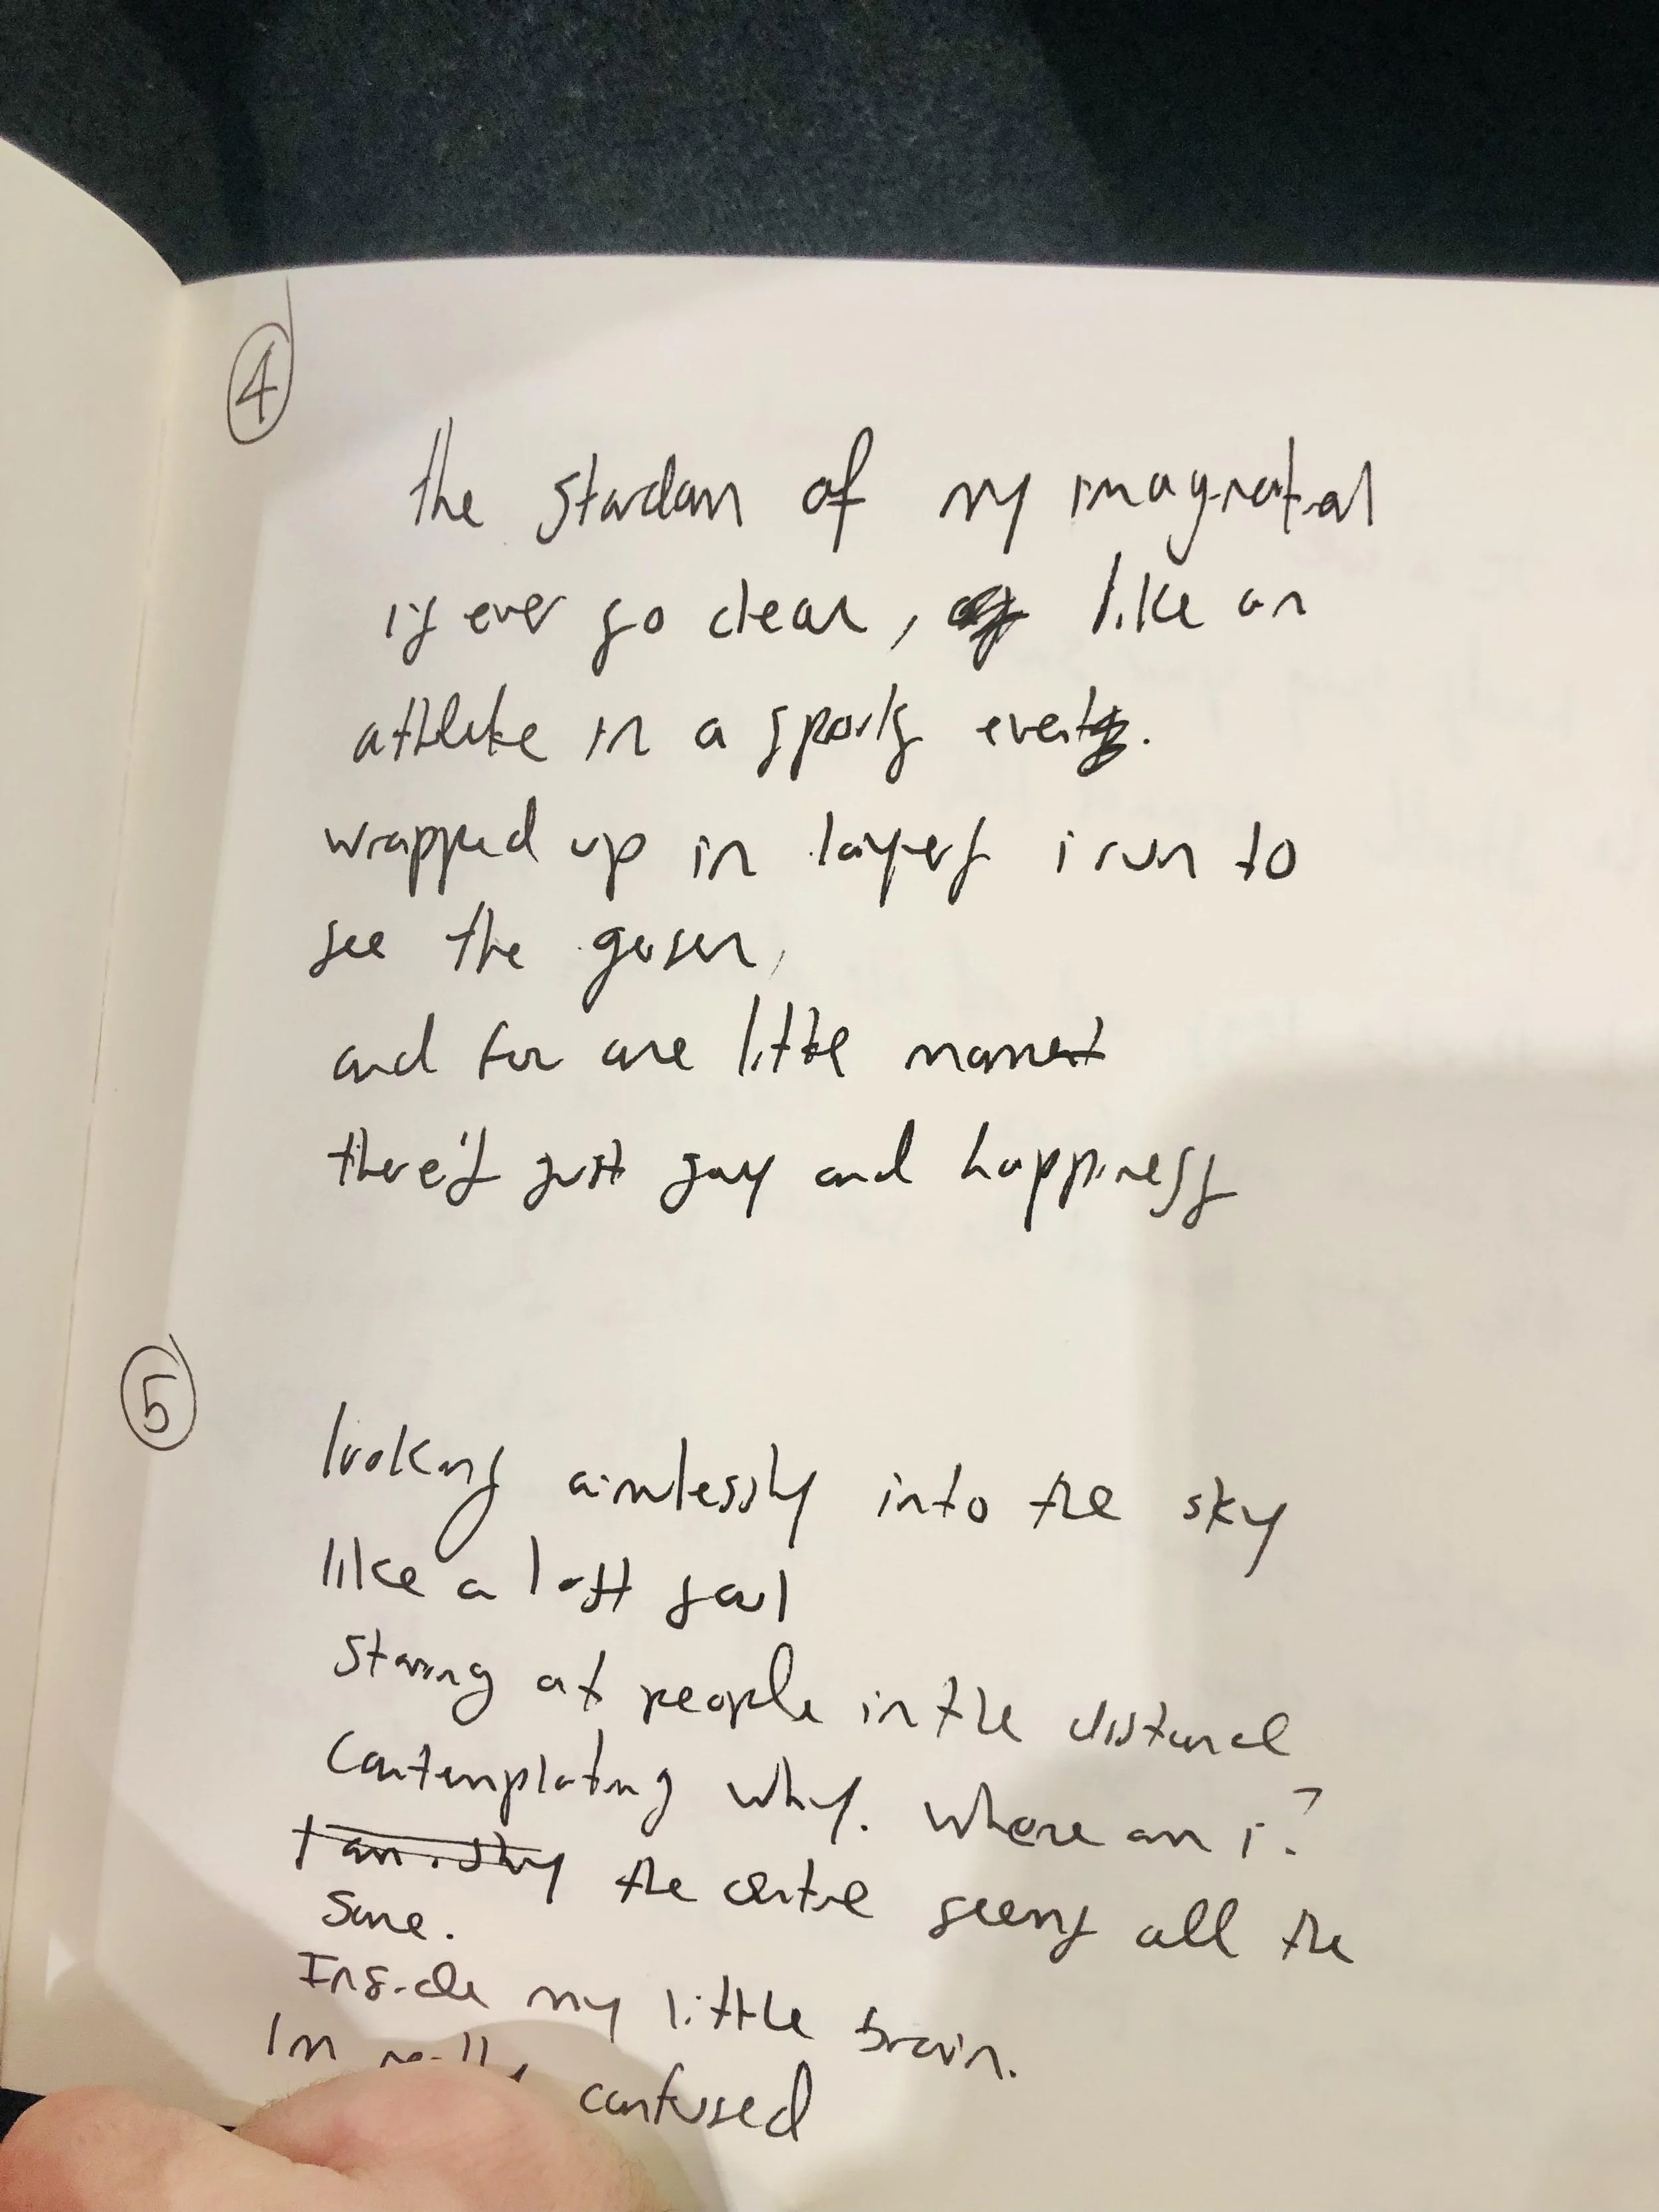 4
the stardom of my
is ever so clear, like an
athlete in a sports event.
wrapped up in layers i run to
see the
and for one little moment
there's just joy and happiness
5
looking aimlessly into the sky
like a lost soul
Staring at people in the distance
Contemplating why. Where am i?
the centre seeing all the
same.
Inside my little brain.
Im really confused